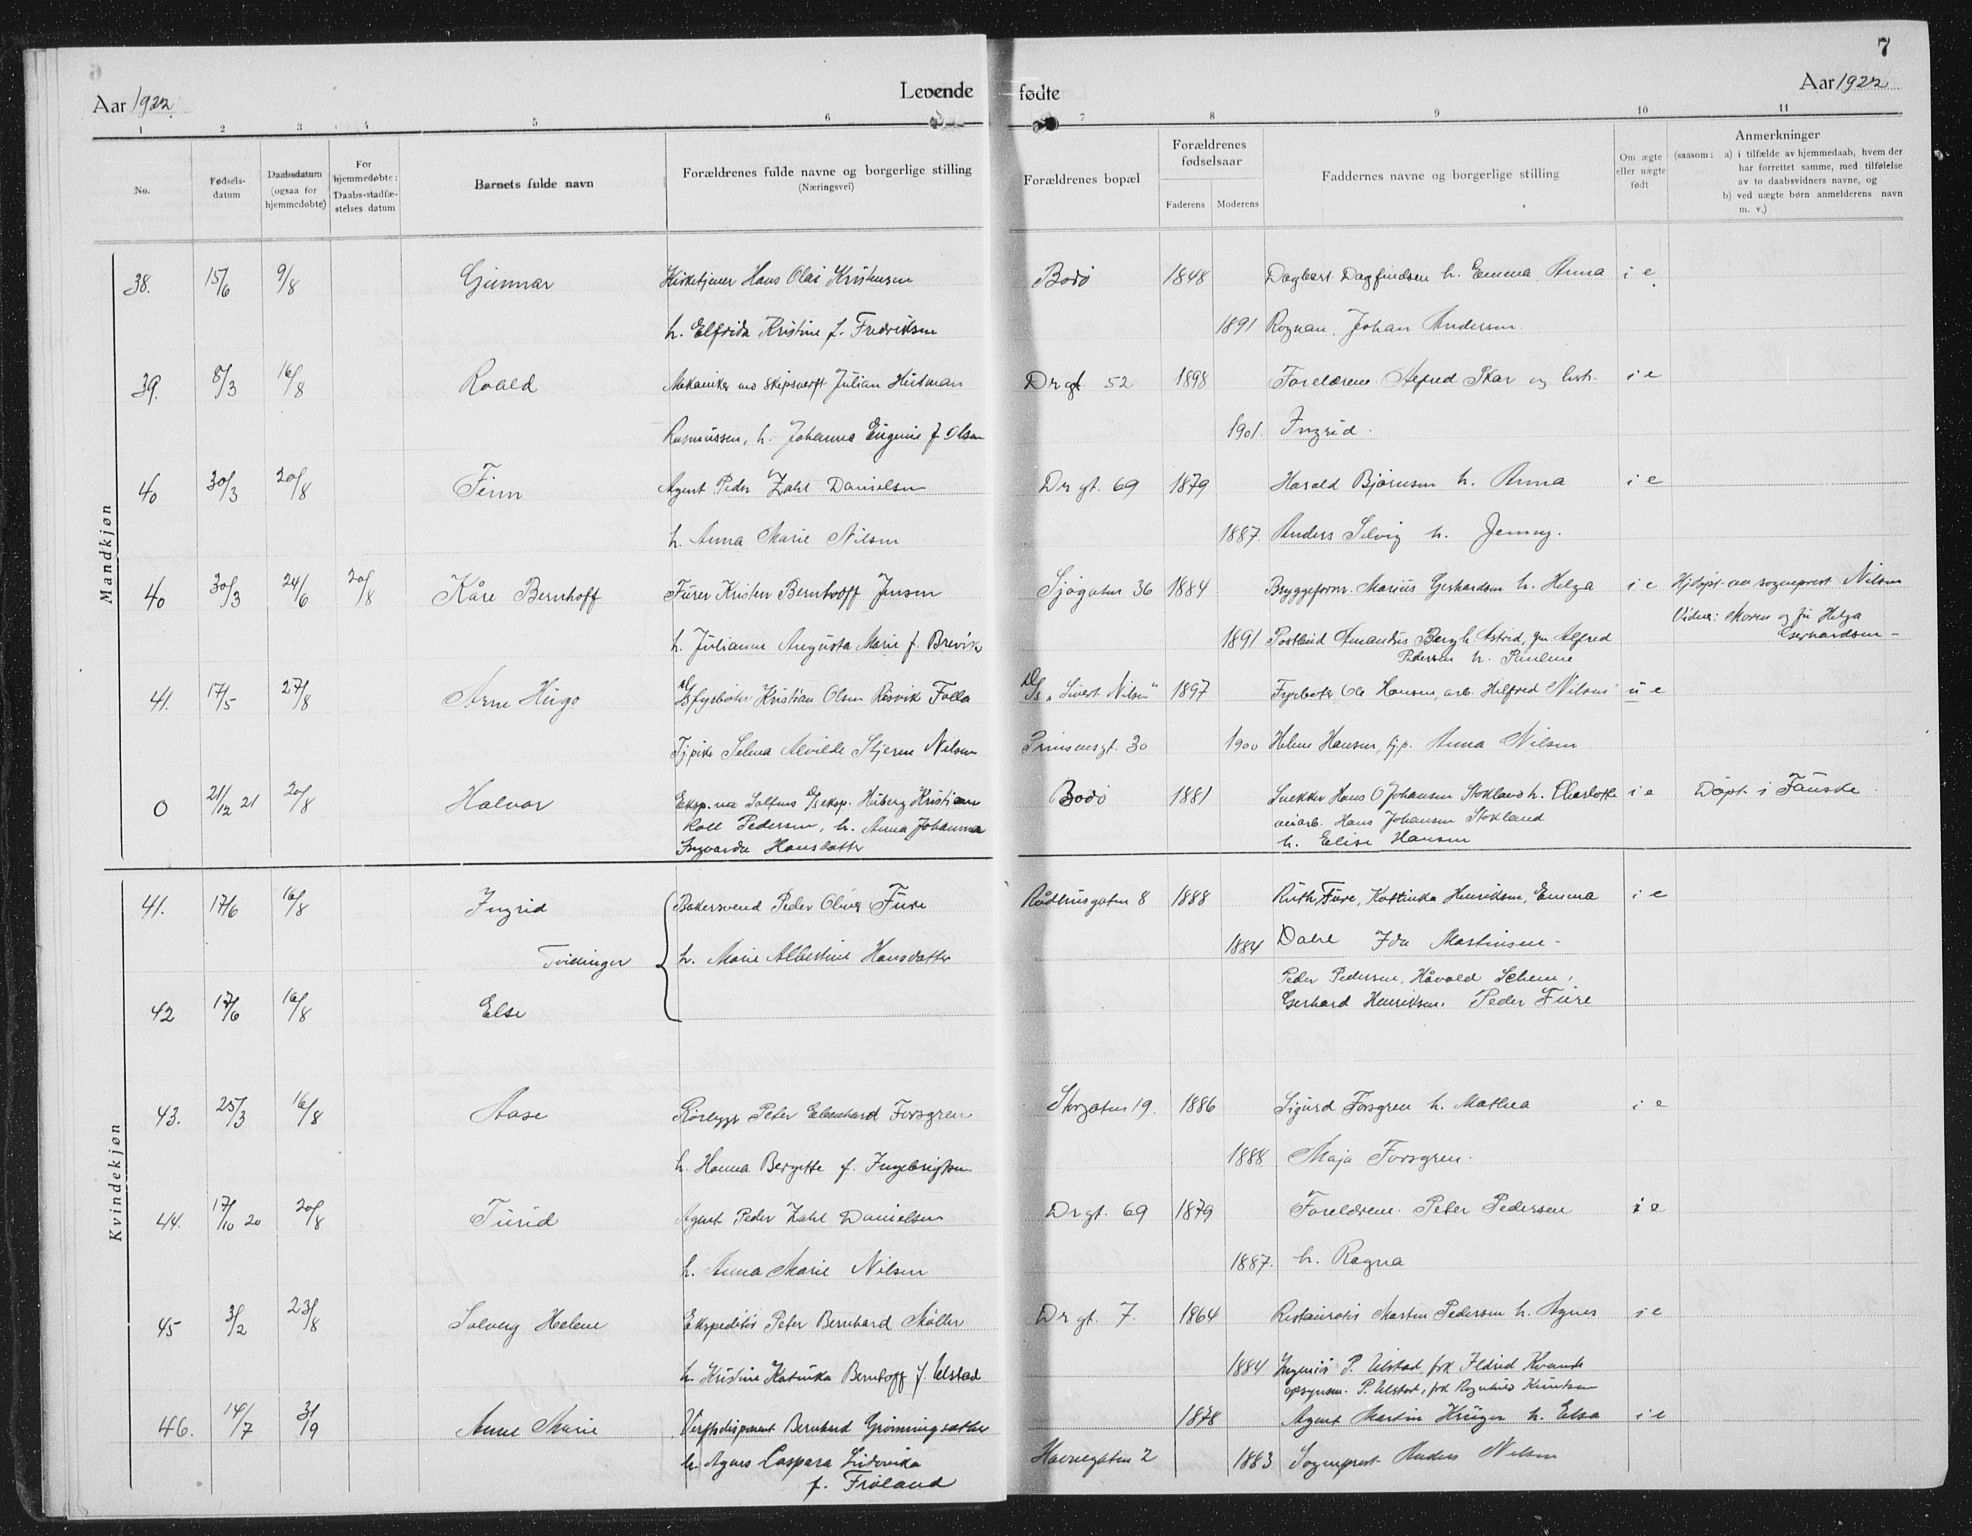 7
Aar 1922
Levende
fødte
Aar 1922
1 2 3 4 5 6 7 8 9 10 11
No.
Fødsels-
datum
Daabsdatum
(ogsaa for
hjemmedøbte)
For
hjemmedøbte:
Daabs-stadfæ-
stelses datum
Barnets fulde navn
Forældrenes fulde navne og borgerlige stilling
(Næringsvei)
Forældrenes bopæl
Forældrenes
fødselsaar
Faderens Moderens
Faddernes navne og borgerlige stilling
Om ægte
eller uægte
født
Anmerkninger
(saasom: a) i tilfælde av hjemmedaab, hvem der
har forrettet samme, med tilføielse
av to daabsvidners navne, og
b) ved uægte børn anmelderens navn
m. v.)
Mandkjøn
38. 15/6 9/8 Gunnar Kirketjener Hans Olai Kristensen Bodø 1848 Dagbert Dagfindsen h. Emma, Anna i e
h. Elfrida Kristine f. Fredriksen 1891 Rognan, Johan Andersen
39. 8/3 16/8 Roald Mekaniker Skipsverft Julian Histman Dr gt 52 1898 Forældrene. Alfred Skar og i e
Rasmussen, h. Johanna Eugenie f. Olsen 1901. Ingrid.
40 30/3 20/8 Finn Agent Peder Zahl Danielsen Dr gt. 69 1879 Harald Bjørnsen h. Anna i e
h. Anna Marie Nilsen 1887. Anders Selvig h. Jenny.
40 30/3 24/6 20/8 Kåre Bernhoff Fører Kristen Bernhoff Jensen Sjøgaten 36 1884 Bryggeform. Marius Gerhardsen h. Helga i e Hjdøpt. av sogneprest Nilsen
Vidner: Moren og fru Helga
Gerhardsen -
h. Julianne Augusta Marie f. Brevik 1891 Postbud Amandus Berg h. Astrid, Alfred
Pedersen h. Pauline
41. 17/5 27/8 Arne Hugo fyrbøter Kristian Olsen Røsvik Folla D/S "Sivert Nilsen" 1897 Fyrbøter Ole Hansen, arb. Hilfred Nilsen u e
Tjpike Selma Alvilde Stjerne Nilsen Prinsensgt. 30 1900 Helene Hansen, tjp. Anna Nilsen
0 21/12 21 20/8 Halvor Eksp. Hiberg Kristian Bodø 1881 Snekker Hans O Johansen Stokland h. Charlotte i e Døpt i Fauske
Roll Pedersen, h. Anna Johanna veiarb. Hans Johansen Stokland
Ingvarda Hansdatter h. Elise Hansen
Kvindekjøn
41. 17/6 16/8 Ingrid Bakersvend Peder Oliver Fure Rådhusgaten 8 1888 Ruth Fure, Katinka Henriksen, Emma i e
Tvillinger h. Marie Albertine Hansdatter 1884 Dahl Ida Martinsen -
Peder Pedersen, Håvald Schem,
42 17/6 16/8 Else Gerhard Henriksen. Peder Fure
43. 25/3 16/8 Aase Rørlegger Peter Edenhard Forsgren Storgaten 19. 1886 Sigurd Forsgren h. Mathea i e
h. Hanna Bergitte f. Ingebrigtsen 1888 Maja Forsgren.
44. 17/10 20 20/8 Turid Agent Peder Zahl Danielsen Dr gt. 69 1879 Forældrene. Peter Pedersen i e
h. Anna Marie Nilsen 1887. h. Ragna
45 3/2 23/8 Solveig Helene Ekspeditør Peter Bernhard Møller Dr gt. 7. 1864 Restauratør Martin Pedersen h. Agnes i e
h. Kristine Katinka Bernhoff f. Ulstad 1884 Ingeniør P. Ulstad, frk Ildrid Kvande
opsynsm. P. Ulstad, frk Knutsen
46. 14/7 3/9 Anne Marie Verftsdisponent Bernhard Grønningsæther 1878 Agent Martin Krüger h. Elsa i e
h. Agnes Caspara Ludovika Havnegaten 2 1883 Sogneprest Anders Nilsen
f. Frøland